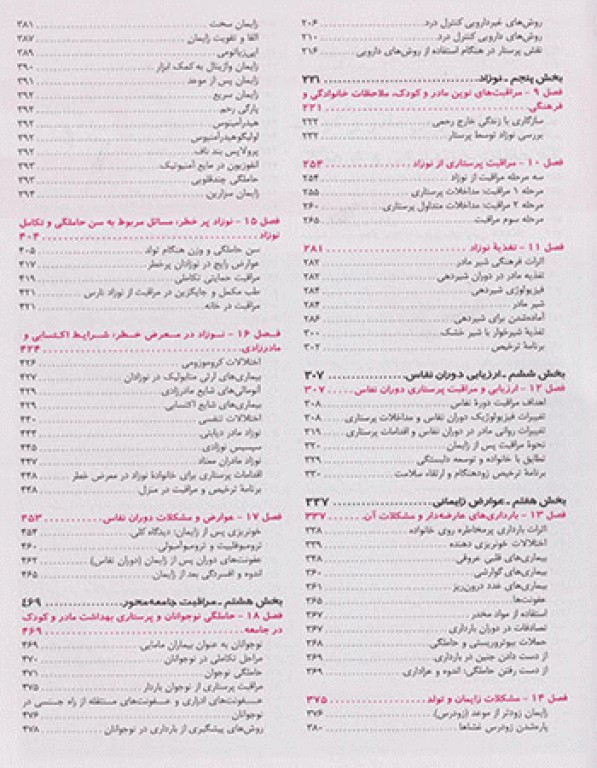 روش‌های غیردارویی کنترل درد ۲۰۶
روش‌های دارویی کنترل درد ۲۱۰
نقش پرستار در هنگام استفاده از روش‌های دارویی ۲۱۶
بخش پنجم ـ نوزاد ۲۲۱
فصل ۹ - مراقبت‌های نوین مادر و کودک، ملاحظات خانوادگی و
فرهنگی ۲۲۱
سازگاری با زندگی خارج رحمی ۲۲۲
بررسی نوزاد توسط پرستار ۲۳۲
فصل ۱۰ - مراقبت پرستاری از نوزاد ۲۵۳
سه مرحله مراقبت از نوزاد ۲۵۴
مرحله ۱ مراقبت: مداخلات پرستاری ۲۵۵
مرحله ۲ مراقبت: مداخلات متداول پرستاری ۲۶۰
مرحله سوم مراقبت ۲۶۵
فصل ۱۱ - تغذیهٔ نوزاد ۲۸۱
اثرات فرهنگی شیر مادر ۲۸۲
تغذیه مادر در دوران شیردهی ۲۸۲
فیزیولوژی شیردهی ۲۸۴
شیر مادر ۲۸۴
آماده‌شدن برای شیردهی ۲۸۶
تغذیهٔ شیرخوار با شیر خشک ۳۰۰
برنامهٔ ترخیص ۳۰۲
بخش ششم ـ ارزیابی دوران نفاس ۳۰۷
فصل ۱۲ - ارزیابی و مراقبت پرستاری دوران نفاس ۳۰۷
اهداف مراقبت دورهٔ نفاس ۳۰۸
تغییرات فیزیولوژیک دوران نفاس و مداخلات پرستاری ۳۰۸
تغییرات روانی مادر در دوران نفاس و اقدامات پرستاری ۳۱۹
نحوهٔ مراقبت پس از زایمان ۳۲۰
تطابق با خانواده و توسعه دلبستگی ۳۲۹
برنامهٔ ترخیص زودهنگام و ارتقاء سلامت ۳۳۰
بخش هفتم ـ عوارض زایمانی ۳۳۷
فصل ۱۳ - بارداری‌های عارضه‌دار و مشکلات آن ۳۳۷
اثرات بارداری پرمخاطره روی خانواده ۳۳۸
اختلالات خونریزی دهنده ۳۳۹
بیماری‌های قلبی ـ عروقی ۳۴۸
بیماری‌های گوارشی ۳۶۰
بیماری‌های غدد درون‌ریز ۳۶۱
عفونت‌ها ۳۶۵
استفاده از مواد مخدر ۳۶۷
تصادفات در دوران بارداری ۳۶۷
حملات بیوتروریستی و حاملگی ۳۶۸
از دست دادن جنین در بارداری ۳۶۹
از دست رفتن حاملگی: اندوه و عزاداری ۳۶۹
فصل ۱۴ - مشکلات زایمان و تولد ۳۷۵
زایمان زودتر از موعد (زودرس) ۳۷۶
پاره‌شدن زودرس غشاها ۳۸۰
زایمان سخت ۳۸۱
القا و تقویت زایمان ۳۸۷
اپی‌زیاتومی ۳۸۹
زایمان واژینال به کمک ابزار ۳۹۰
زایمان پس از موعد ۳۹۱
زایمان سریع ۳۹۲
پارگی رحم ۳۹۲
هیدرآمنیوس ۳۹۲
اولیگوهیدرآمنیوس ۳۹۲
پرولاپس بند ناف ۳۹۲
انفوزیون در مایع آمنیوتیک ۳۹۳
حاملگی چندقلویی ۳۹۳
زایمان سزارین ۳۹۴
فصل ۱۵ - نوزاد پر خطر: مسائل مربوط به سن حاملگی و تکامل
نوزاد ۴۰۴
سن حاملگی و وزن هنگام تولد ۴۰۵
عوارض رایج در نوزادان پرخطر ۴۱۷
مراقبت حمایتی تکاملی ۴۱۹
طب مکمل و جایگزین در مراقبت از نوزاد نارس ۴۲۱
مراقبت در خانه ۴۲۱
فصل ۱۶ - نوزاد در معرض خطر: شرایط اکتسابی و
مادرزادی ۴۲۴
اختلالات کروموزومی ۴۲۶
بیماری‌های ارثی متابولیک در نوزادان ۴۲۷
آنومالی‌های شایع مادرزادی ۴۲۹
بیماری‌های شایع اکتسابی ۴۲۹
اختلالات تنفسی ۴۴۰
نوزاد مادر دیابتی ۴۴۴
سپسیس نوزادی ۴۴۵
نوزاد مادران معتاد ۴۴۷
اقدامات پرستاری برای خانوادهٔ نوزاد در معرض خطر ۴۴۸
برنامهٔ ترخیص و مراقبت در منزل ۴۴۸
فصل ۱۷ - عوارض و مشکلات دوران نفاس ۴۵۳
خونریزی پس از زایمان: دیدگاه کلی ۴۵۴
ترومبوفلبیت و ترومبوآمبولی ۴۶۰
عفونت‌های دوران پس از زایمان (دوران نفاس) ۴۶۲
اندوه و افسردگی بعد از زایمان ۴۶۵
بخش هشتم ـ مراقبت جامعه‌محور ۴۶۹
فصل ۱۸ - حاملگی نوجوانان و پرستاری بهداشت مادر و کودک
در جامعه ۴۶۹
نوجوانان به عنوان بیماران مامایی ۴۶۹
مراحل تکاملی در نوجوانان ۴۷۰
حاملگی نوجوان ۴۷۱
مراقبت پرستاری از نوجوان باردار ۴۷۵
عفونت‌های ادراری و عفونت‌های منتقله از راه جنسی در
نوجوانان ۴۷۶
روش‌های پیشگیری از بارداری در نوجوانان ۴۷۸